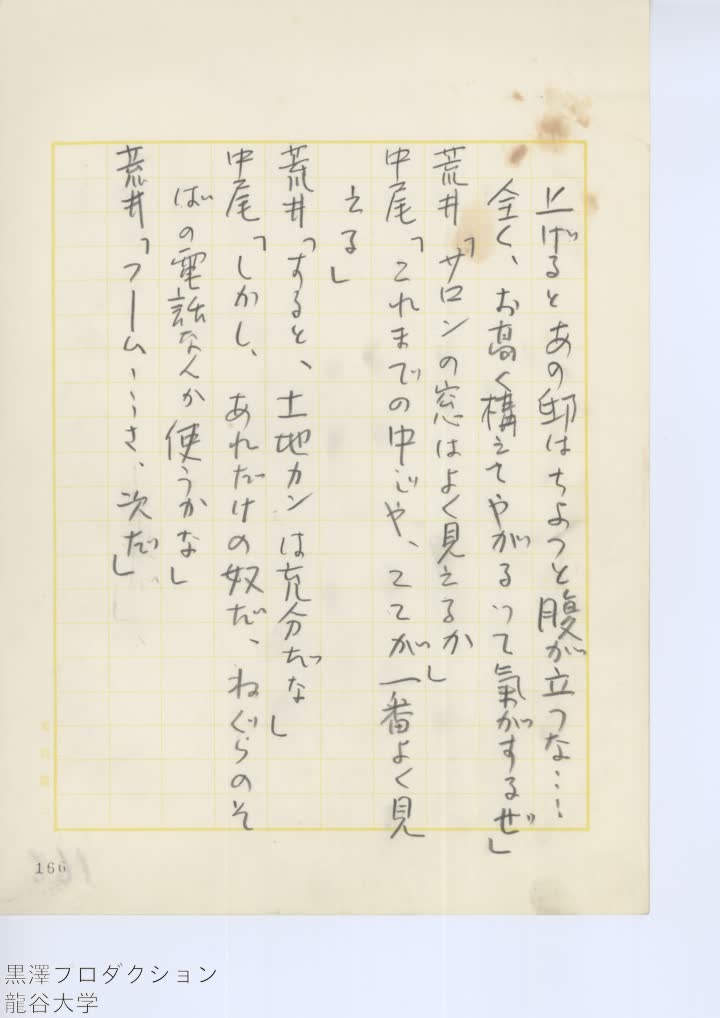 上げるとあの邸はちよつと腹が立つな……
全く、お高く構えてやがるつて氣がするぜ」
荒井「サロンの窓はよく見えるか」
中尾「これまでの中じや、こゝが一番よく見
える」
荒井「すると、土地カンは充分だな」
中尾「しかし、あれだけの奴だ、ねぐらのそ
ばの電話なんか使うかな」
荒井「フーム……さ、次だ」
166
黒澤プロダクション
龍谷大学